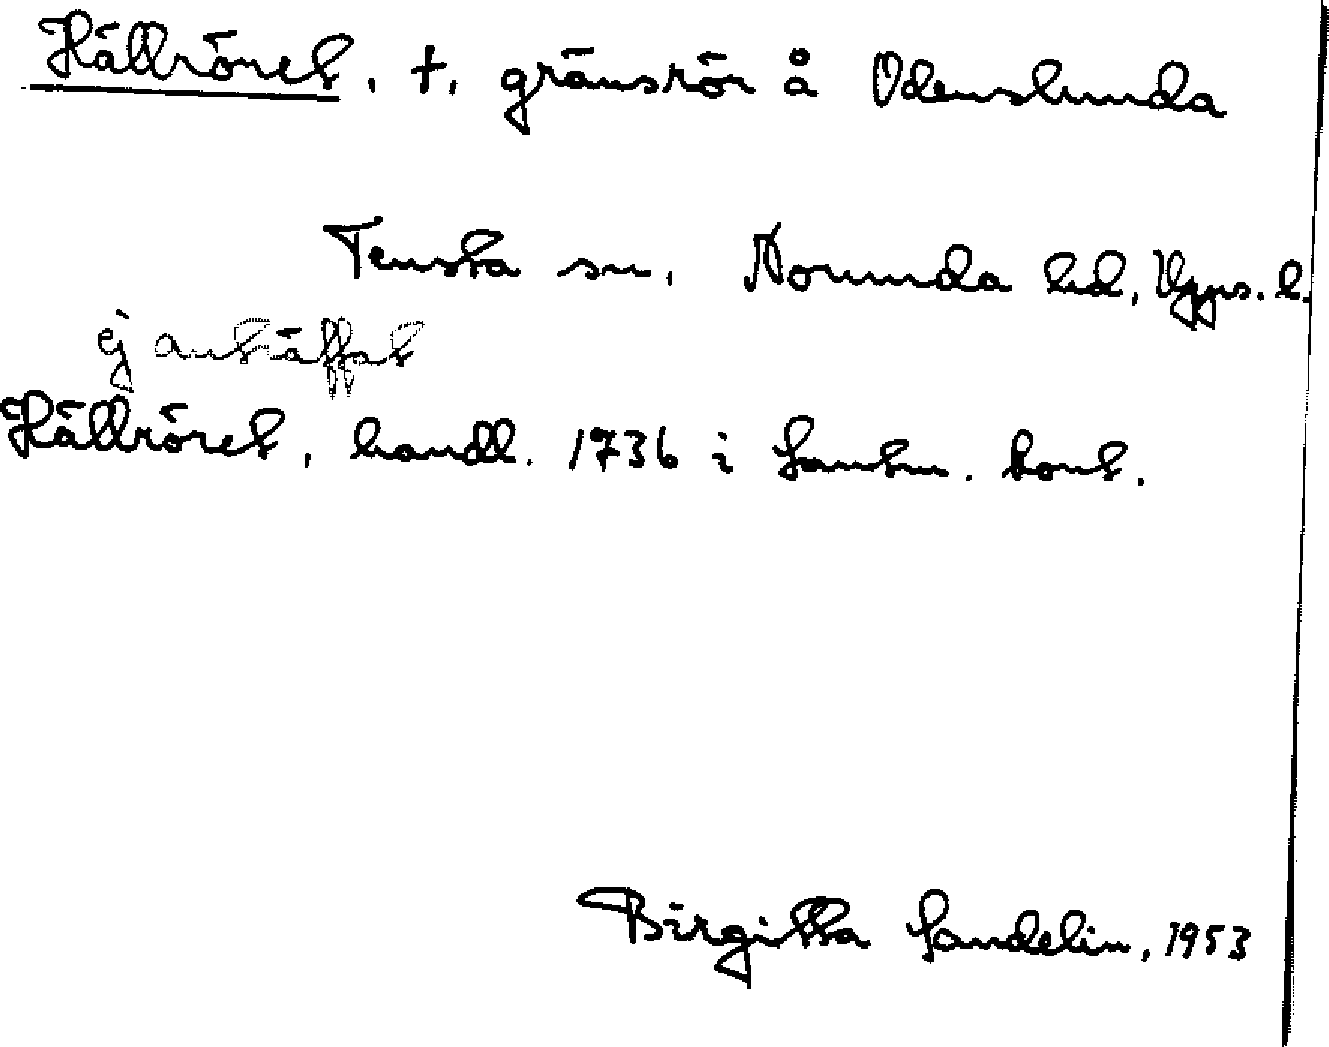 Hällröret, †, gränsrör å Odenslunda
Tensta sn. Norunda hd, Upps. l.
ej anträffat
Hällröret, handl. 1736 i Lantm. kont.
Birgitta Sandelin, 1953